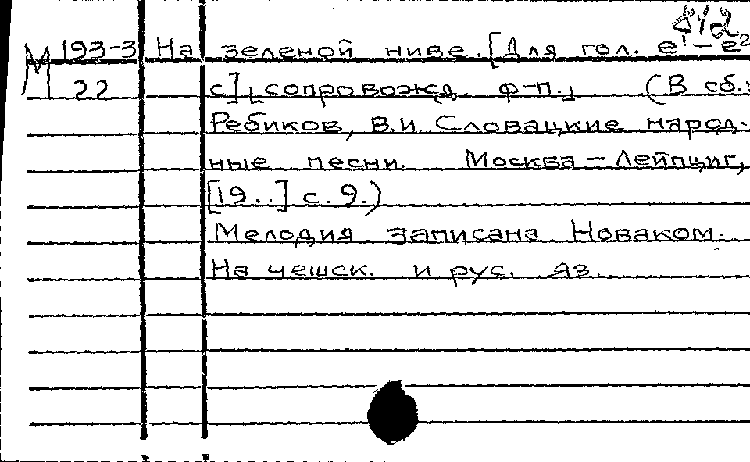 412
М 193-3 На зеленой ниве. [Для гол. e¹ – e²
22 с] [сопровожд. ф-п.] (В сб.:
Ребиков, В.И. Словацкие народ-
ные песни. Москва – Лейпциг,
[19..] с. 9.)
Мелодия записана Новаком.
На чешск. и рус. яз.